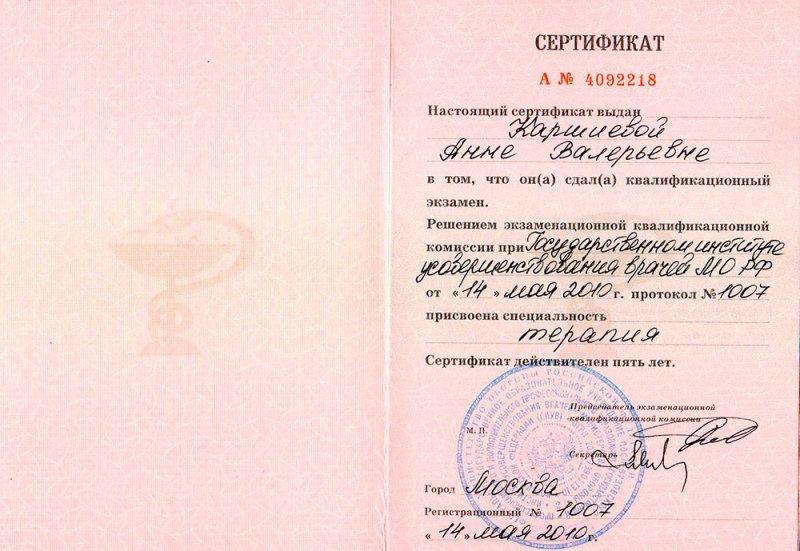 СЕРТИФИКАТ
А № 4092218
Настоящий сертификат выдан
Каршиевой
Анне Валерьевне
в том, что он(а) сдал(а) квалификационный
экзамен.
Решением экзаменационной квалификационной
комиссии при Государственном институте
усовершенствования врачей МО РФ
от «14» мая 2010 г. протокол № 1007
присвоена специальность
терапия
Сертификат действителен пять лет.
Председатель экзаменационной
квалификационной комиссии
М. П.
Секретарь
Город Москва
Регистрационный № 1007
«14» мая 2010 г.